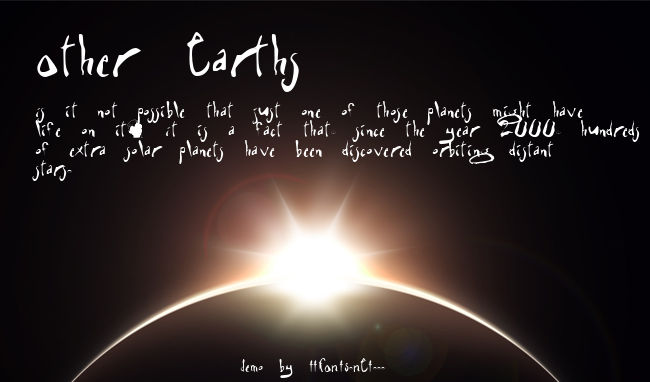 other Earths
is it not possible that just one of those planets might have
life on it it is a fact that since the year 2000 hundreds
of extra solar planets have been discovered orbiting distant
stars-
demo by ttfonts-nEt---